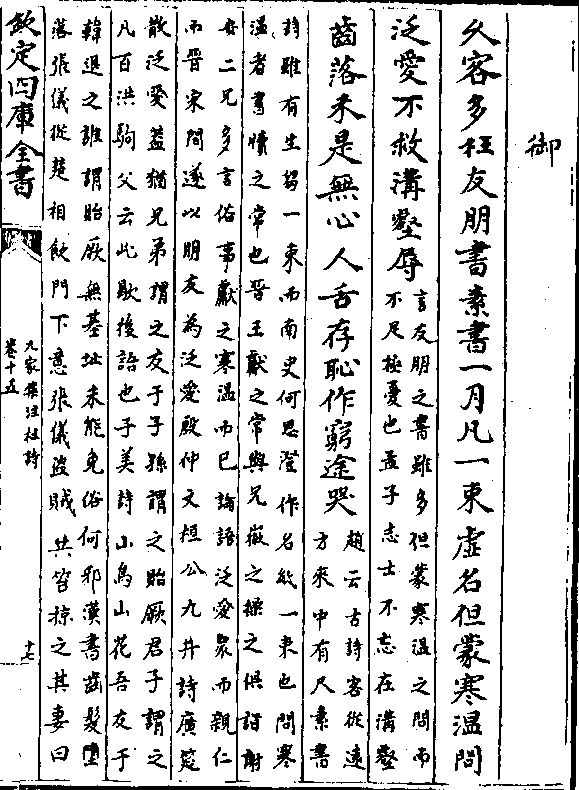 御
久客多枉友朋書素書一月凡一束虛名但蒙寒溫問
泛愛不救溝壑辱言友朋之書雖多但蒙寒溫之問而
不足極憂也孟子志士不忘在溝壑
齒落未是無心人舌存恥作窮途哭趙云古詩客從遠
方來中有尺素書
詩雖有生芻一束而南史何思澄作名紙一束也問寒
溫者書牘之常也晉王獻之常與兄徽之操之俱詣謝
安二兄多言俗事獻之寒溫而已論語泛愛衆而親仁
而晉宋間遂以朋友為泛愛殷仲文桓公九井詩廣筵
散泛愛蓋猶兄弟謂之友于子孫謂之貽厥君子謂之
凡百洪駒父云此歇後語也子美詩山鳥山花吾友于
韓退之誰謂貽厥無基址未能免俗何邪漢書齒髮墮
落張儀從楚相飲門下意張儀盜賊共笞掠之其妻曰
欽定四庫全書
九家集注杜詩
卷十五
十七